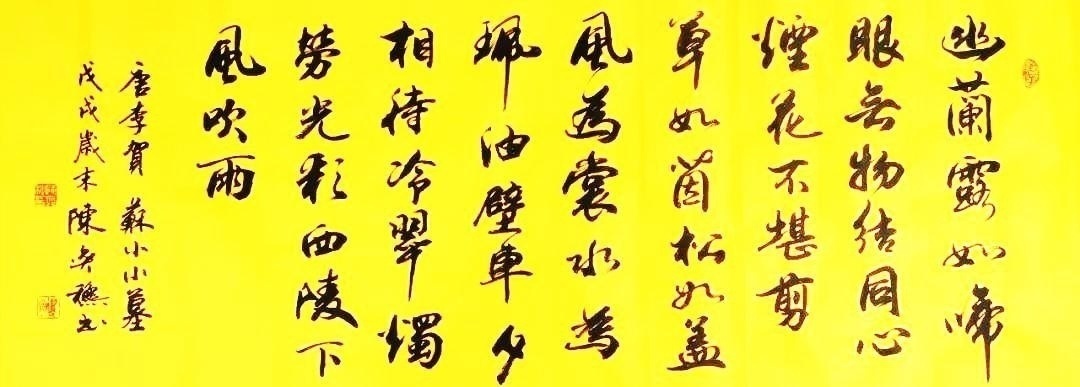 幽蘭露如啼
眼無物結同心
煙花不堪剪
草如茵松如盖
風為裳水為
珮油壁車夕
相待冷翠燭
勞光彩西陵下
風吹雨
唐李賀 蘇小小墓
戊戌歲末陳書